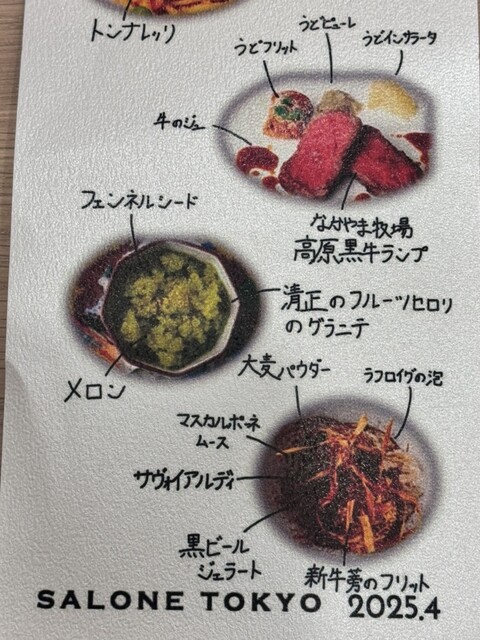 トンナレッリ
うどピューレ
うどフリット
うどインサラータ
牛のジュ
なかやま牧場
高原黒牛ランプ
フェンネルシード
清正のフルーツセロリ
のグラニテ
メロン
大麦パウダー
ラフロイグの泡
マスカルポーネ
ムース
サヴォイアルディ
黒ビール
ジェラート
新牛蒡のフリット
SALONE TOKYO 2025.4